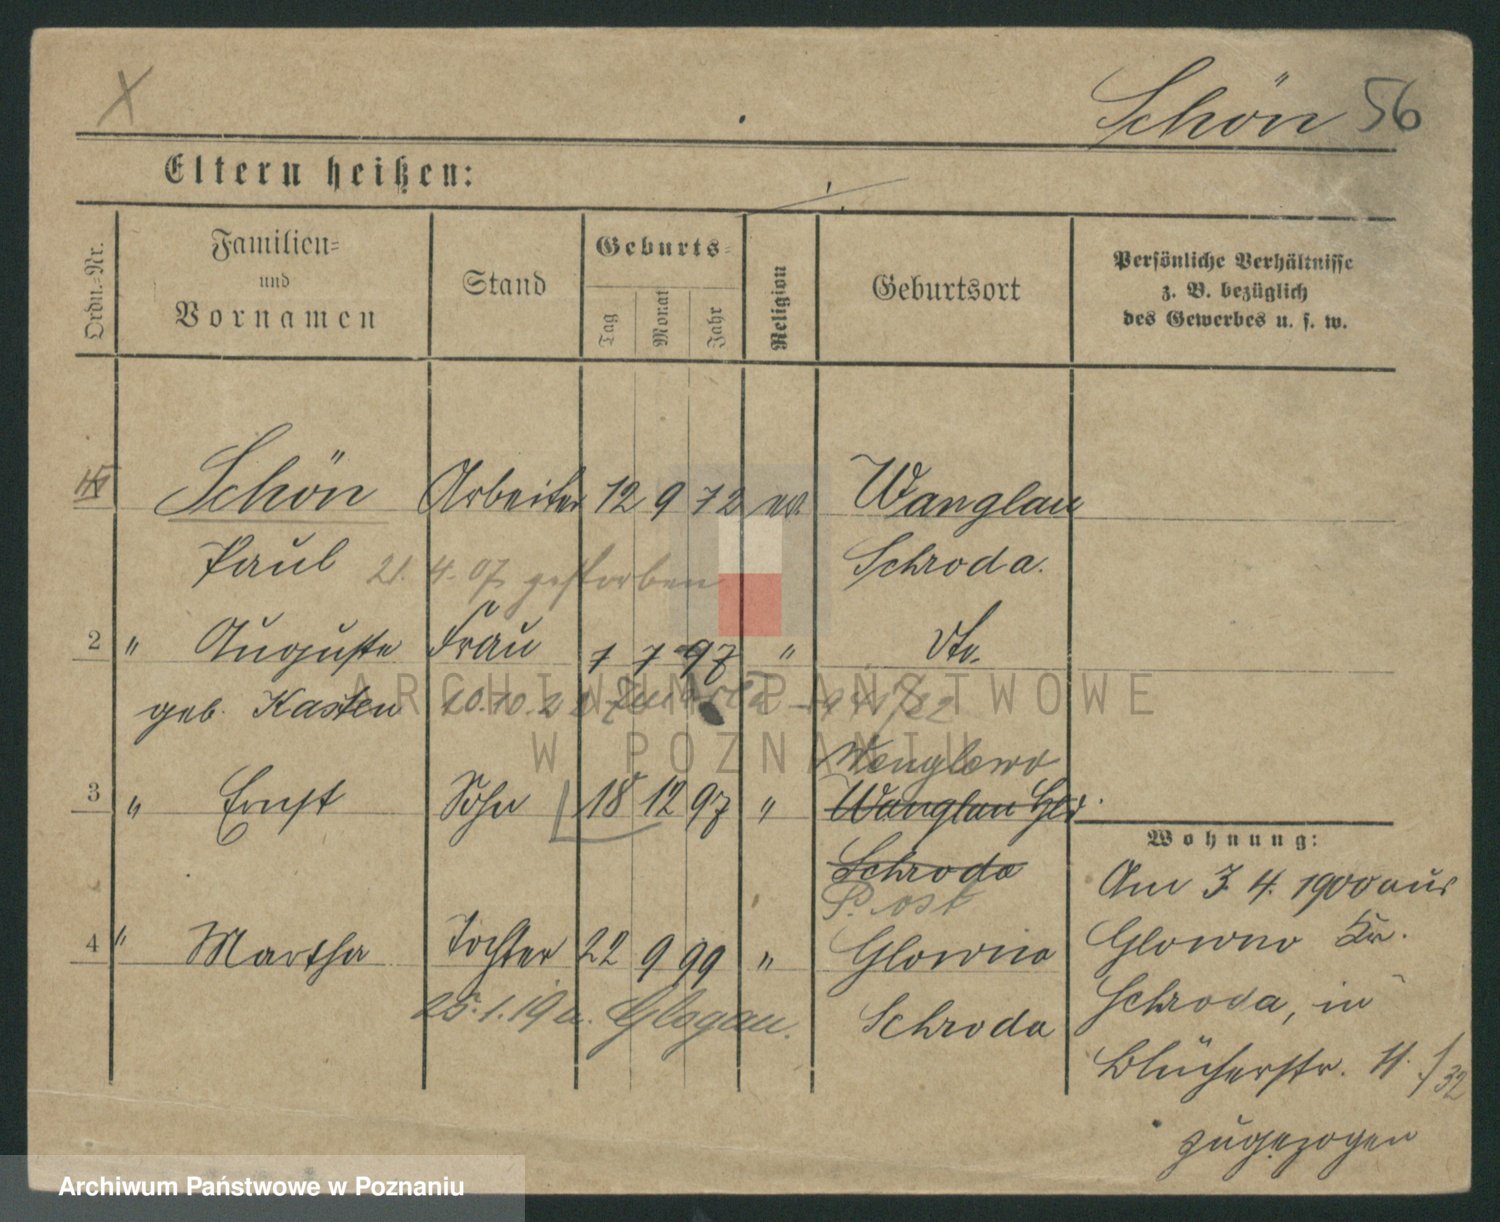 X
Schön 56
Eltern heißen:
Ordn.-Nr.
Familien-
und
Vornamen
Stand
Geburts-
Tag
Monat
Jahr
Religion
Geburtsort
Persönliche Verhältnisse
z. B. bezüglich
des Gewerbes u. s. w.
Schön Arbeiter 12 9 72 ev. Wanglau
Paul 21. 4. 07 gestorben Schroda.
2 " Auguste Frau 7 7 " dto.
geb. Kasten 10.10.2
Wenglewo
3 " Ernst Sohn 18 12 97 " Wanglau
Schroda
P. ost
4 " Martha Tochter 22 9 99 " Glowno
25.1.19 a. Glogau. Schroda
Wohnung:
Am 3. 4. 1900 aus
Glowno Kr.
Schroda, in
Blücherstr. 11. /32
zugezogen
ARCHIWUM PAŃSTWOWE
W POZNANIU
Archiwum Państwowe w Poznaniu